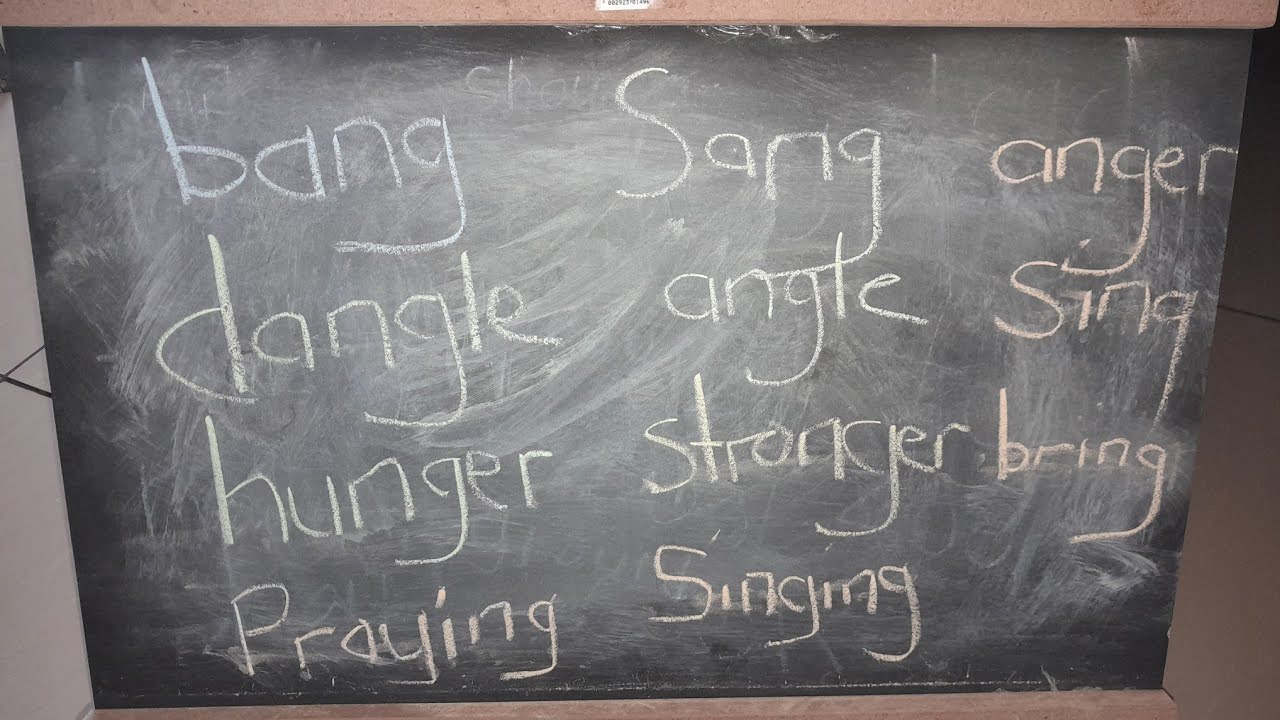 bang Sang anger
dangle angle Sing
hunger stronger bring
Praying Singing